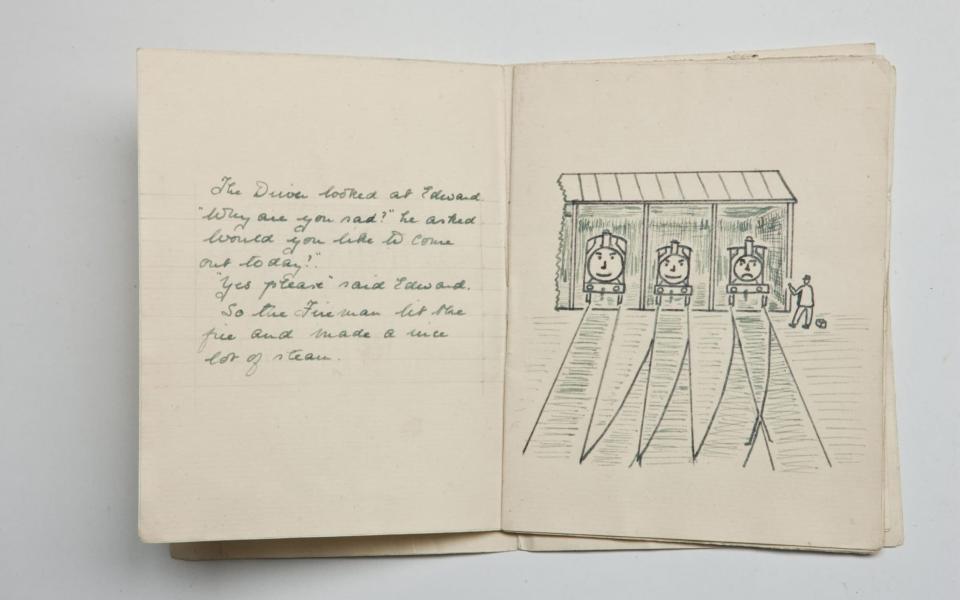 The Driver looked at Edward
"Why are you sad?" he asked
Would you like to come
out today?"
"Yes please" said Edward.
So the Fireman lit the
fire and made a nice
lot of steam.